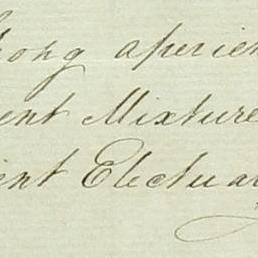 rong aperien
ent Mixture
ent Electuar